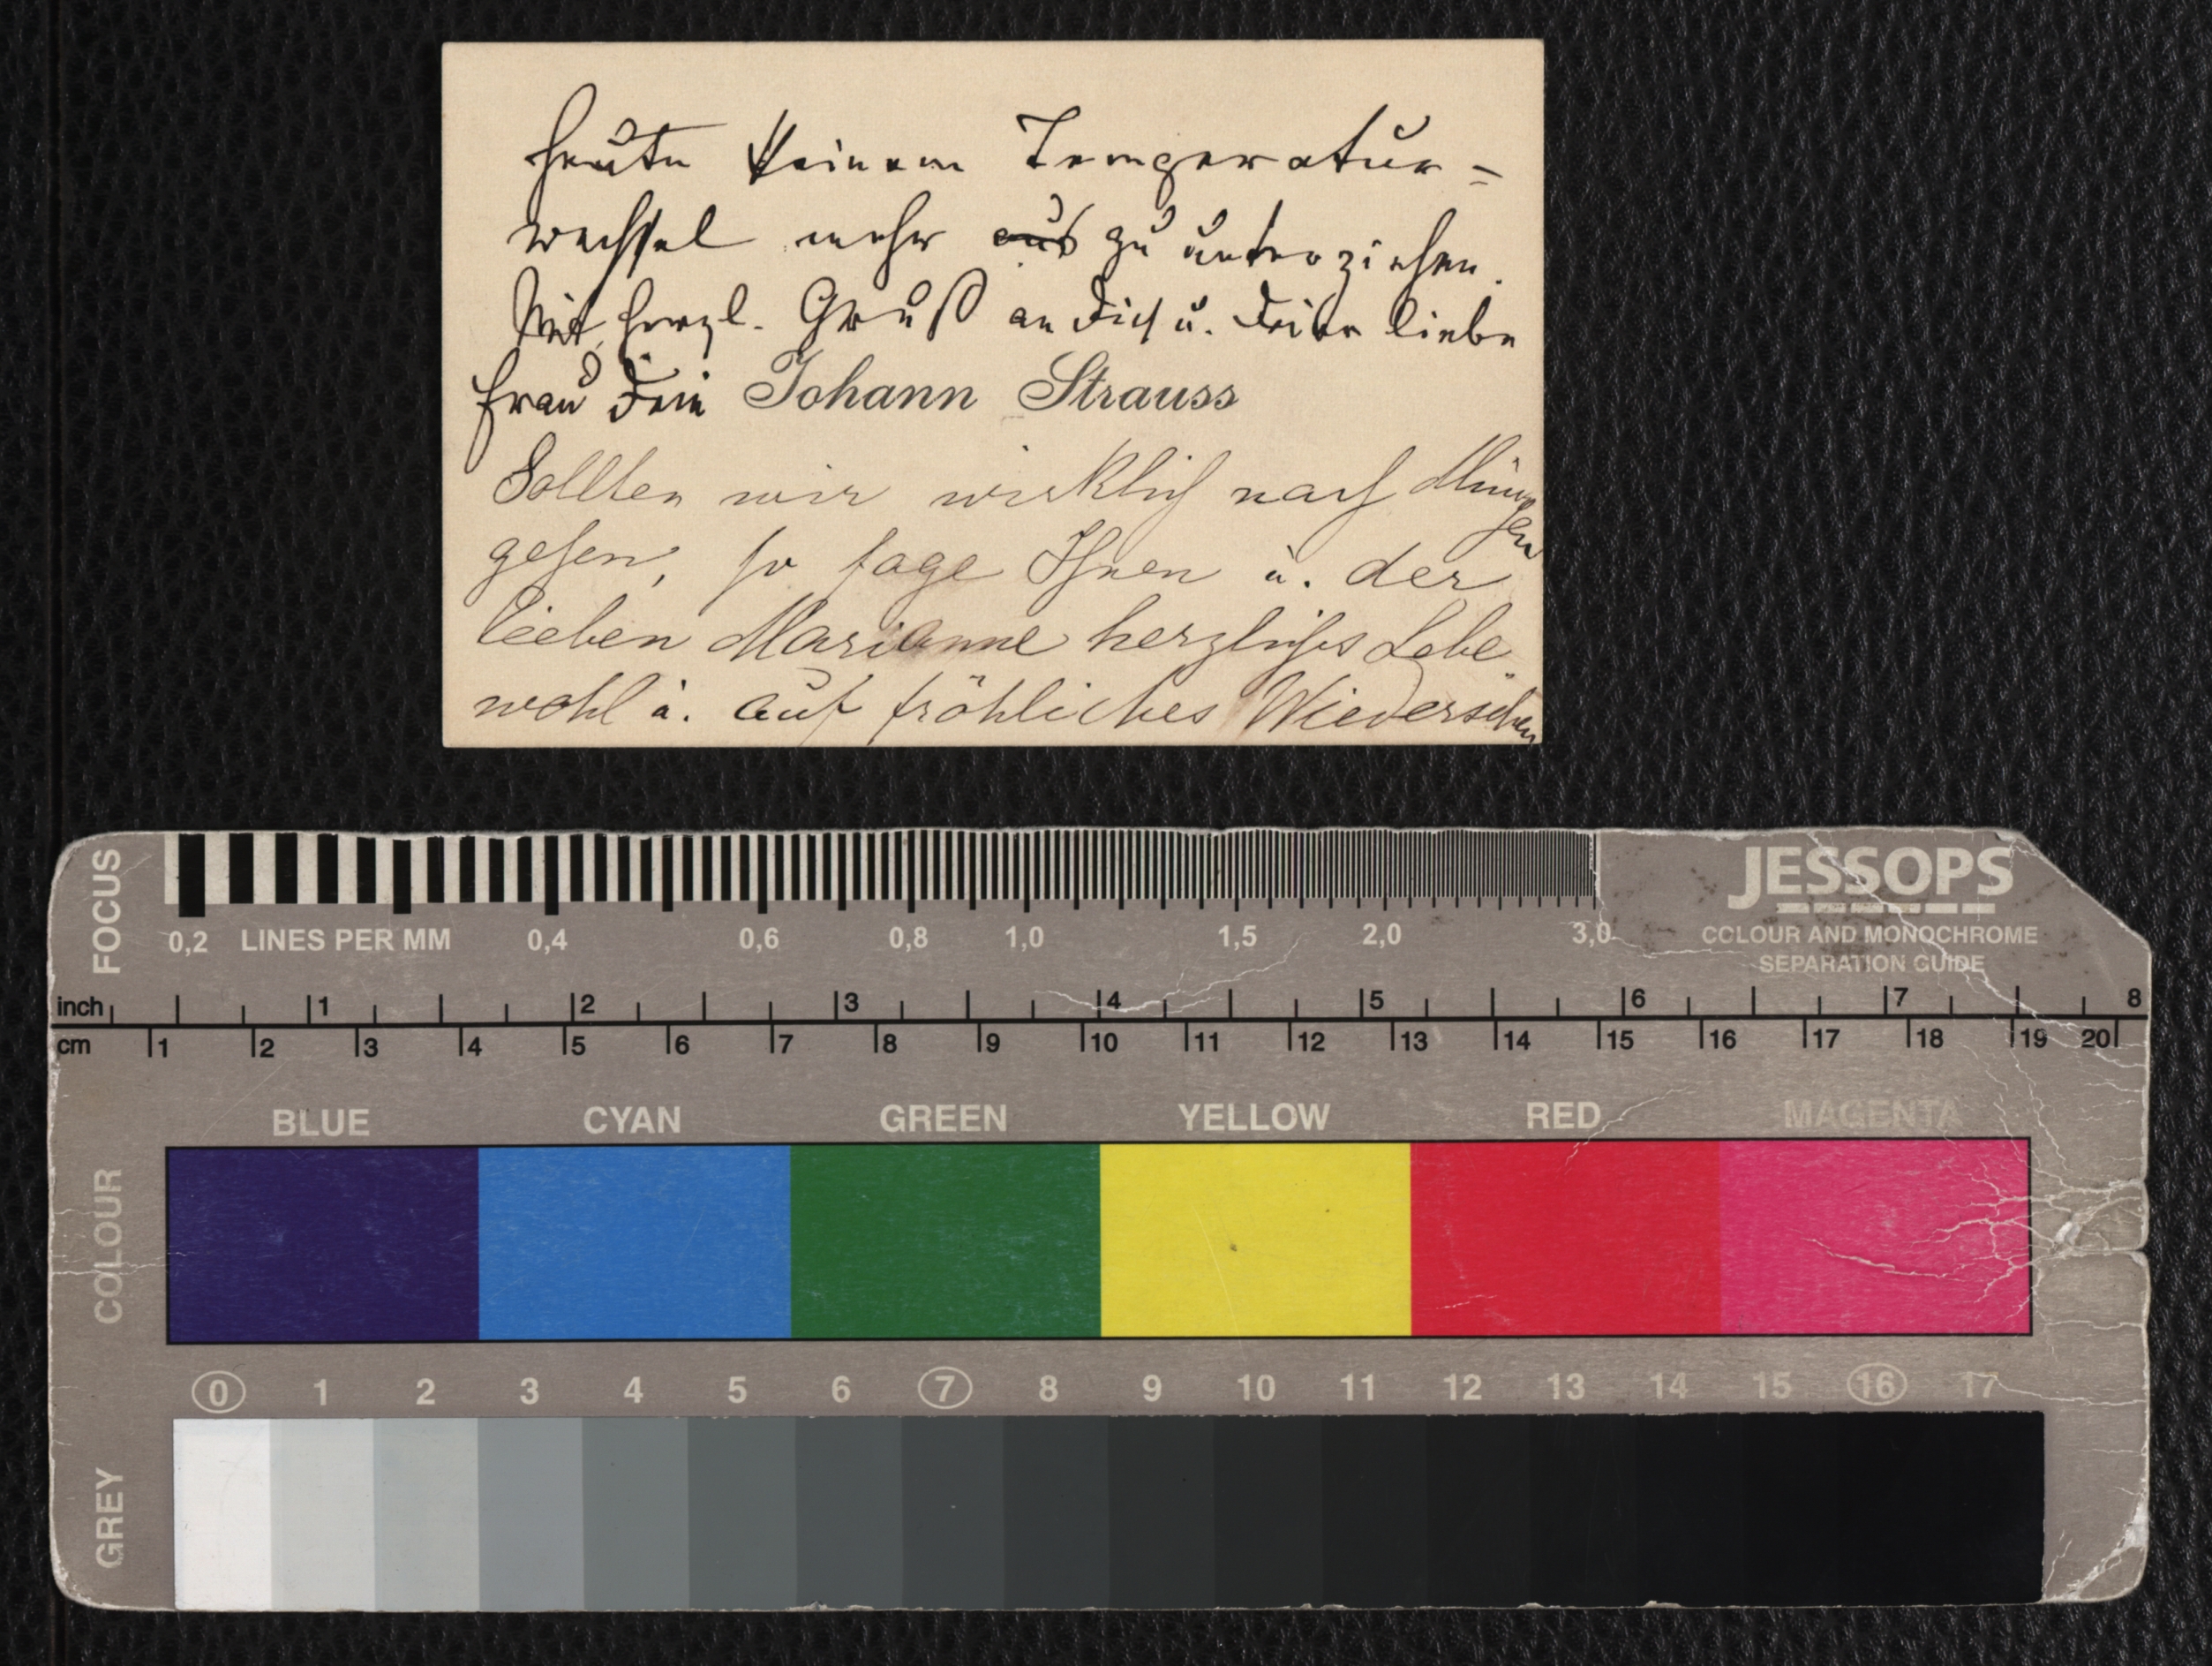 heute keinem Temperatur=
wechsel mehr aus zu unterziehen.
Mit herzl. Gruß an Dich u. Deine liebe
Frau Dein Johann Strauss
Sollten wir wirklich nach München
gehen, so sage Ihnen u. der
lieben Marianne herzliches Lebe
wohl u. auf fröhliches Wiedersehen
FOCUS
0,2 LINES PER MM 0,4 0,6 0,8 1,0 1,5 2,0 3,0
JESSOPS
COLOUR AND MONOCHROME
SEPARATION GUIDE
inch 1 2 3 4 5 6 7 8
cm 1 2 3 4 5 6 7 8 9 10 11 12 13 14 15 16 17 18 19 20
BLUE CYAN GREEN YELLOW RED MAGENTA
COLOUR
0 1 2 3 4 5 6 7 8 9 10 11 12 13 14 15 16 17
GREY